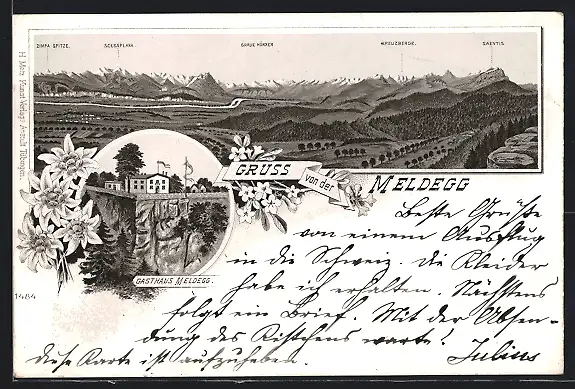 ZIMPA SPITZE. SCESAPLANA. GRAUE HÖRNER KREUZBERGE. SAENTIS.
H. Metz Kunst Verlags-Anstalt Tübingen.
GRUSS von der MELDEGG
GASTHAUS MELDEGG.
1484
Beste Grüße
von einem Ausflug
in die Schweiz. Die Kleider
habe ich erhalten. Nächstens
folgt ein Brief. Mit der Absen-
dung des Kistchens warte!
Diese Karte ist aufzuheben. Julius